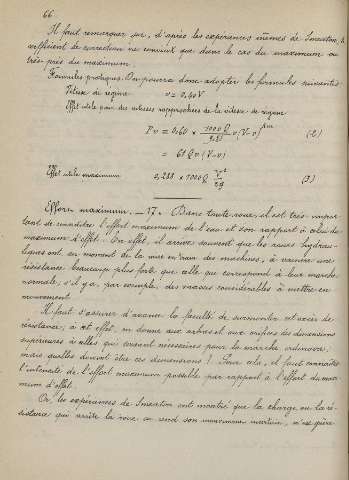 66.
Il faut remarquer que, d'après les expériences mêmes de Smeaton, le
coefficient de correction ne convient que dans le cas du maximum ou
très près du maximum.
Formules pratiques. On pourra donc adopter les formules suivantes
Vitesse de régime v = 0,40 V
Effet utile pour des vitesses rapprochées de la vitesse de régime
Pv = 0,60 × 1000 Q / 9,81 v (V-v) (2)
= 61 Q v (V-v)
Effet utile maximum 0,288 × 1000 Q V² / 2g (3)
Effort maximum. _ 17. Dans toute roue, il est très impor-
tant de connaître l'effort maximum de l'eau et son rapport à celui du
maximum d'effet. On effet, il arrive souvent que les roues hydrau-
liques ont, au moment de la mise en train des machines, à vaincre une
résistance beaucoup plus forte que celle qui correspond à leur marche
normale, s'il y a, par exemple, des masses considérables à mettre en
mouvement.
Il faut s'assurer d'avance la faculté de surmonter cet excès de
résistance; à cet effet, on donne aux arbres et aux orifices des dimensions
supérieures à celles qui seraient nécessaires pour la marche ordinaire;
mais quelles doivent être ces dimensions? Pour cela, il faut connaître
l'intensité de l'effort maximum possible par rapport à l'effort du maxi-
mum d'effet.
Or, les expériences de Smeaton ont montré que la charge ou la ré-
sistance qui arrête la roue ou rend son mouvement incertain, n'est guère